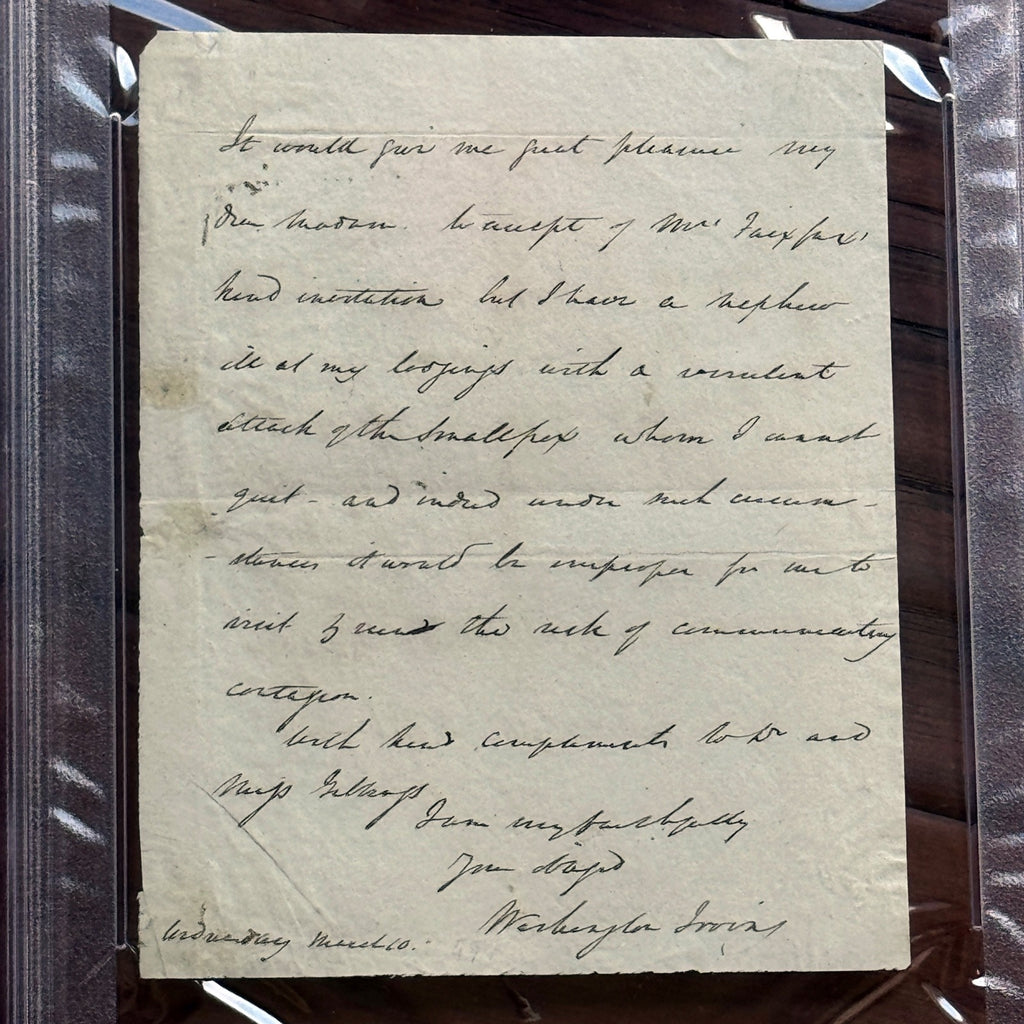 It would give me great pleasure my
dear Madam. to accept of Mrs Fairfax'
kind invitation but I have a nephew
ill at my lodgings with a virulent
attack of the Small pox whom I cannot
quit - and indeed under such circum -
- stances it would be improper for me to
visit & run the risk of communicating
contagion.
With kind compliments to Dr and
Miss
I am very faithfully
Your obligd
Washington Irving
Wednesday March 10.